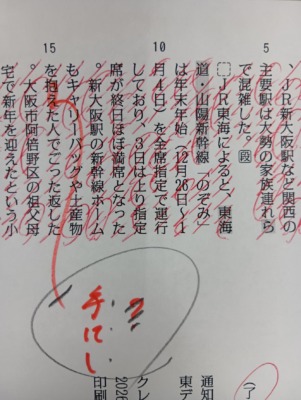 5
10
15
、JR新大阪駅など関西の
主要駅は大勢の家族連れら
で混雑した。段
JR東海によると、東海
道・山陽新幹線「のぞみ」
は年末年始(12月26日~1
月4日)を全席指定で運行
しており、3日は上り指定
席が終日ほぼ満席となった
。新大阪駅の新幹線ホーム
もキャリーバッグや土産物
を抱えた人でごった返した
。大阪市阿倍野区の祖父母
宅で新年を迎えたという小
手にし
(了
通知
東デ
クレ
2026
印刷